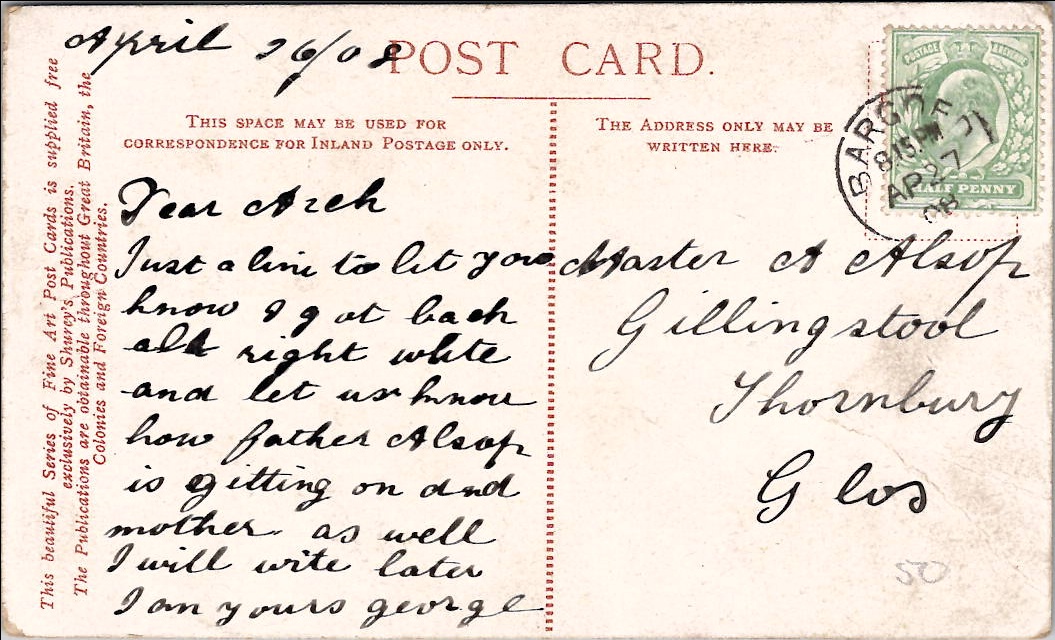 April 26/08
POST CARD.
THIS SPACE MAY BE USED FOR
CORRESPONDENCE FOR INLAND POSTAGE ONLY.
THE ADDRESS ONLY MAY BE
WRITTEN HERE.
This beautiful Series of Fine Art Post Cards is supplied free
exclusively by Shurey's Publications.
The Publications are obtainable throughout Great Britain, the
Colonies and Foreign Countries.
Dear Arch
Just a line to let you
know I got back
all right write
and let us know
how father Alsop
is gitting on and
mother as well
I will wite later
I am yours george
Master A Alsop
Gillingstool
Thornbury
Glos
POSTAGE & REVENUE
HALF PENNY
BARGOE
8.15 PM
AP 27
08
50